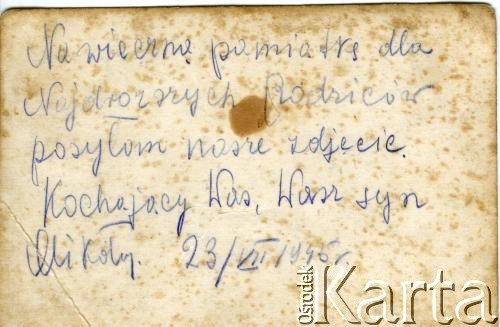 Na wieczną pamiątkę dla
Najdroższych Rodziców
posyłam nasze zdjęcie.
Kochający Was, Wasz syn
Mikołaj. 23/VII 1945 r.
Ośrodek
Karta